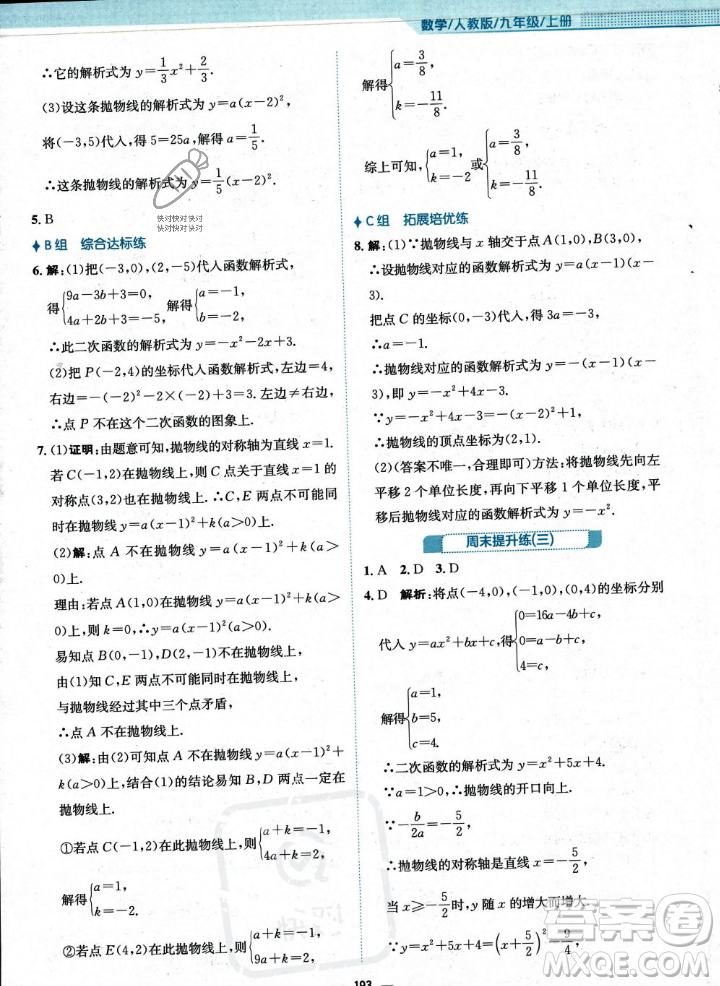 数学/人教版/九年级/上册
∴它的解析式为 y=1/3x²+2/3.
(3)设这条抛物线的解析式为 y=a(x-2)²,
将(-3,5)代入,得 5=25a,解得 a=1/5.
∴这条抛物线的解析式为 y=1/5(x-2)².
快对快对快对
快对快对快对
5. B
B组 综合达标练
6. 解:(1)把(-3,0),(2,-5)代入函数解析式,
得{9a-3b+3=0, 4a+2b+3=-5, 解得{a=-1, b=-2.
∴此二次函数的解析式为 y=-x²-2x+3.
(2)把 P(-2,4)的坐标代入函数解析式,左边=4,
右边=-(-2)²-2×(-2)+3=3.左边≠右边,
∴点 P 不在这个二次函数的图象上.
7. (1)证明:由题意可知,抛物线的对称轴为直线 x=1.
若 C(-1,2)在抛物线上,则 C 点关于直线 x=1 的
对称点(3,2)也在这条抛物线上.∴C、E 两点不可能同
时在抛物线 y=a(x-1)²+k(a>0)上.
(2)解:点 A 不在抛物线 y=a(x-1)²+k(a>0)上.
理由:若点 A(1,0)在抛物线 y=a(x-1)²+k(a>
0)上,则 k=0,∴抛物线为 y=a(x-1)²(a>0).
易知点 B(0,-1),D(2,-1)不在抛物线上,
由(1)知 C、E 两点不可能同时在抛物线上,
与抛物线经过其中三个点矛盾,
∴点 A 不在抛物线上.
(3)解:由(2)可知点 A 不在抛物线 y=a(x-1)²+
k(a>0)上,结合(1)的结论易知 B,D 两点一定在抛
物线上.
①若点 C(-1,2)在此抛物线上,则{a+k=-1, 4a+k=2,
解得{a=1, k=-2.
②若点 E(4,2)在此抛物线上,则{a+k=-1, 9a+k=2,
解得{a=3/8, k=-11/8.
综上可知,{a=1, k=-2 或{a=3/8, k=-11/8.
C组 拓展培优练
8. 解:(1)∵抛物线与 x 轴交于点 A(1,0),B(3,0),
∴设抛物线对应的函数解析式为 y=a(x-1)(x-
3).
把点 C 的坐标(0,-3)代入,得 3a=-3.
∴a=-1.
∴抛物线对应的函数解析式为 y=-(x-1)(x-
3),即 y=-x²+4x-3.
∵y=-x²+4x-3=-(x-2)²+1,
∴抛物线的顶点坐标为(2,1).
(2)(答案不唯一,合理即可)方法:将抛物线先向左
平移 2 个单位长度,再向下平移 1 个单位长度,平
移后抛物线对应的函数解析式为 y=-x².
周末提升练(三)
1. A 2. D 3. D
4. D 解析:将点(-4,0),(-1,0),(0,4)的坐标分别
代入 y=ax²+bx+c,得{0=16a-4b+c, 0=a-b+c, 4=c,
解得{a=1, b=5, c=4.
∴二次函数的解析式为 y=x²+5x+4.
∵a=1>0,∴抛物线的开口向上.
∵-b/2a=-5/2,
∴抛物线的对称轴是直线 x=-5/2,
当 x≥-5/2时,y 随 x 的增大而增大.
∵y=x²+5x+4=(x+5/2)²-9/4,
答案卷
193